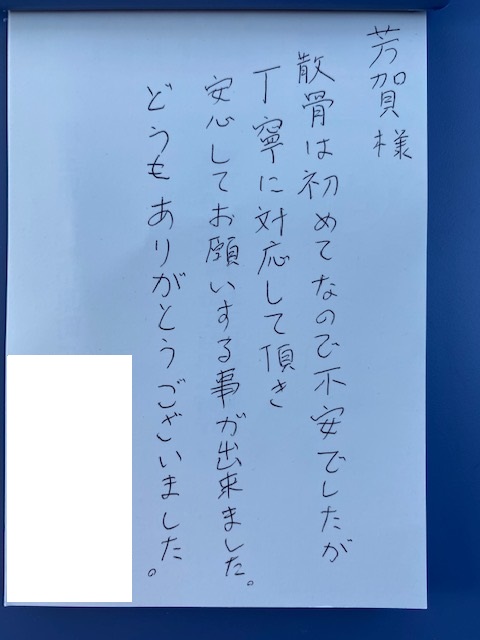 芳賀様
散骨は初めてなので不安でしたが
丁寧に対応して頂き
安心してお願いする事が出来ました。
どうもありがとうございました。